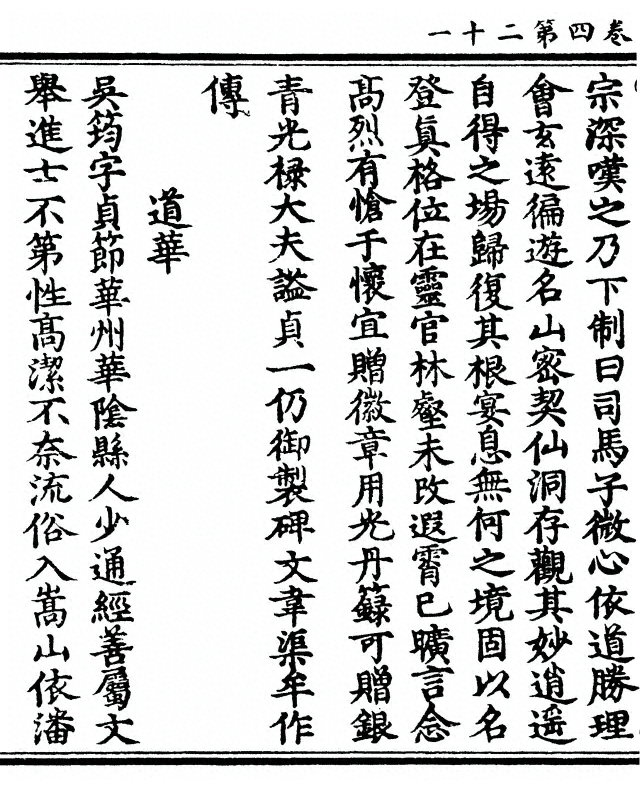 卷四第二十一
宗深嘆之乃下制曰司馬子微心依道勝理
會玄遠徧遊名山密契仙洞存觀其妙逍遥
自得之場歸復其根宴息無何之境固以名
登真格位在靈官林壑未改遐霄已曠言念
高烈有愴于懷宜贈徽章用光丹籙可贈銀
青光祿大夫謚貞一仍御製碑文韋渠牟作
傳
道華
吳筠字貞節華州華陰縣人少通經善屬文
舉進士不第性高潔不奈流俗入嵩山依潘